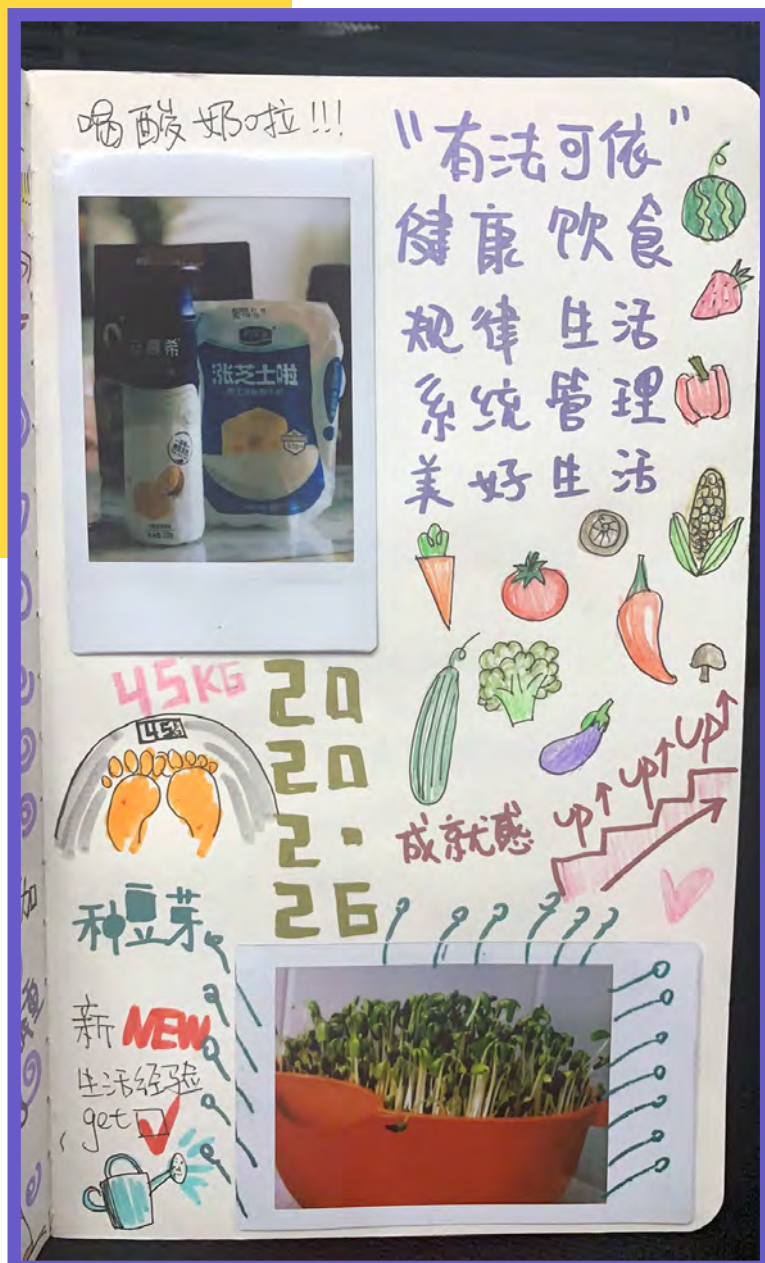 喝酸奶啦!!!
"有法可依"
健康饮食
规律生活
系统管理
美好生活
涨芝士啦
45KG
45
20
20
2·
26
成就感
up↑up↑up↑
种豆芽
新NEW
生活经验
get